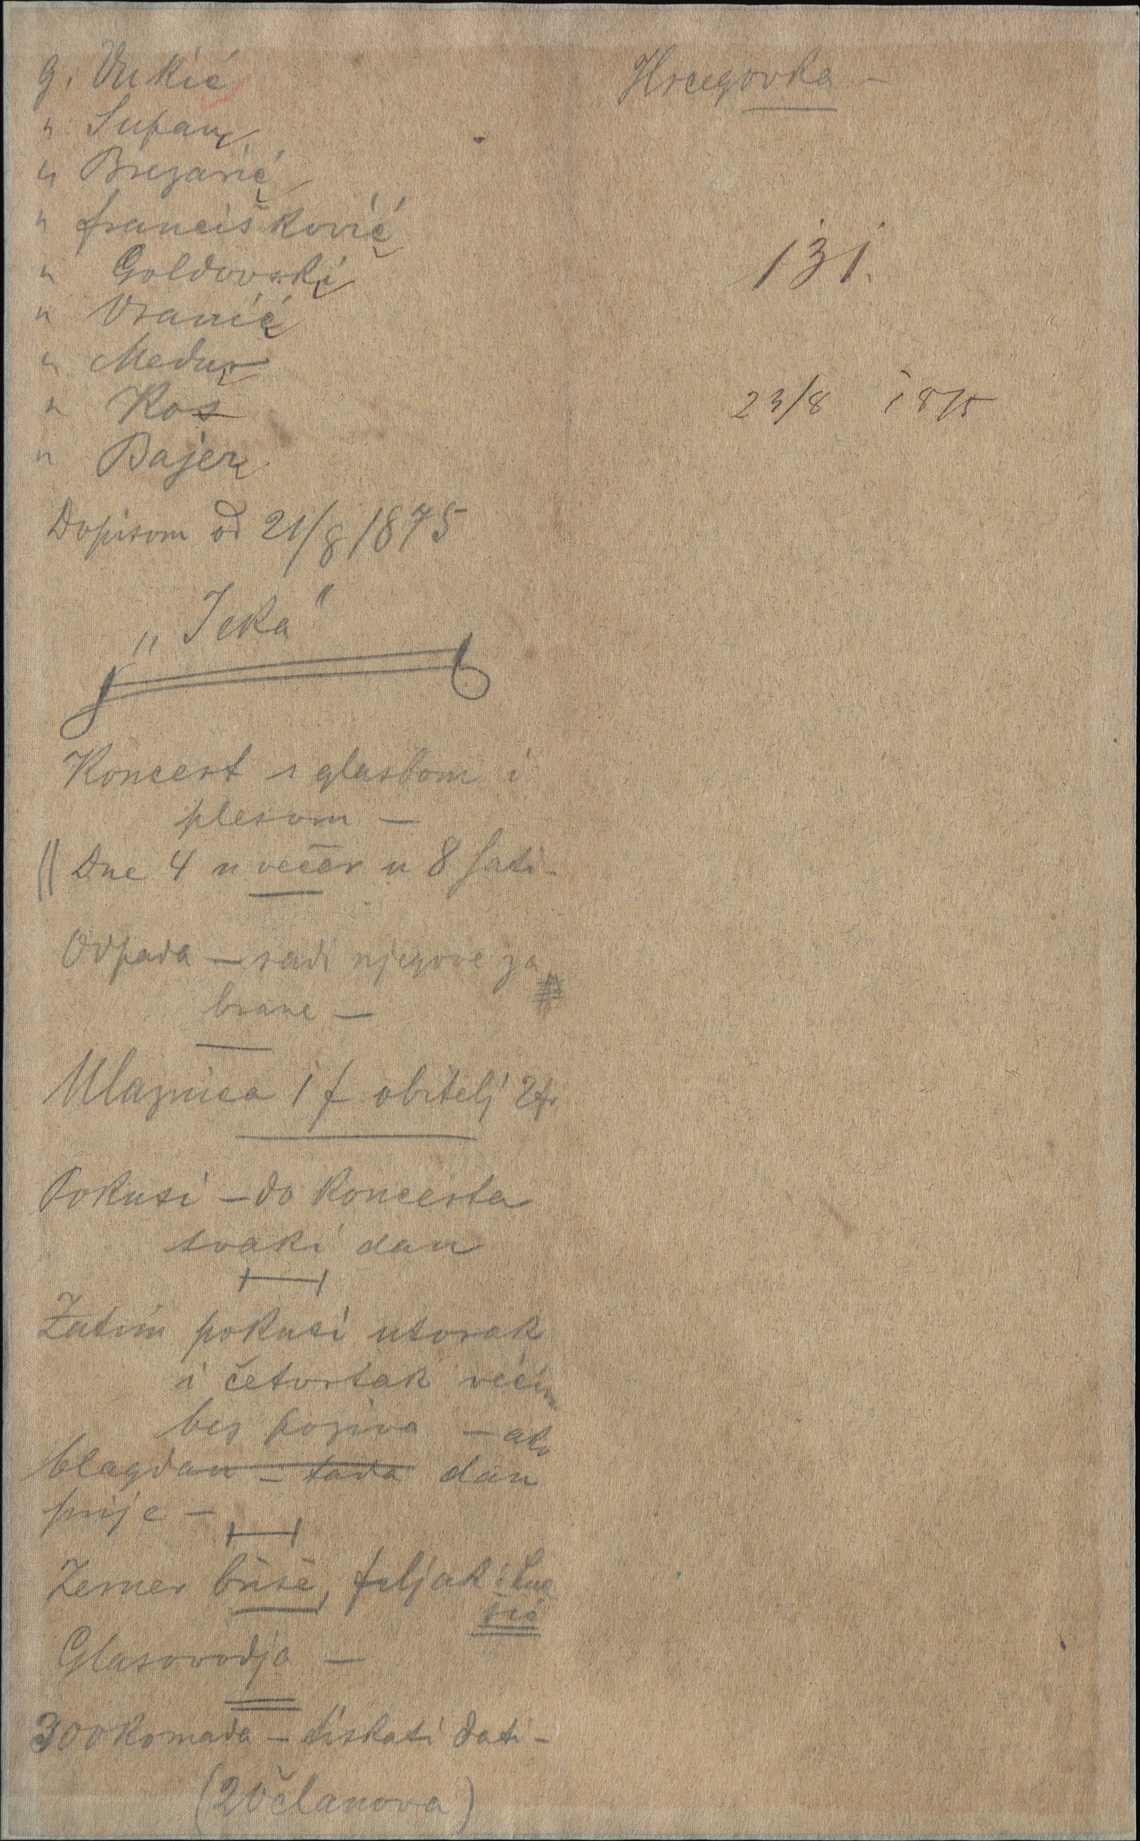 g. Vukić
" Supan
" Brezarić
" Francišković
" Goldovski
" Vranić
" Medur
" Kos
" Bajer
Dopisom od 21/8 1875
„Jeka"
Koncert s glasbom i
plesom —
Dne 4 u večer u 8 sati -
Odpada — radi njegove za
brane —
Ulaznica 1 f obitelj 2 f.
Pokusi — do koncerta
svaki dan
Zatim pokusi utorak
i četvrtak
bez poziva — ako
blagdan — tada dan
prije —
Zerner briše, filjak i
Glasovodja —
300 komada — tiskati dati —
(20 članova)
Hrcegovka —
131.
23/8 1875